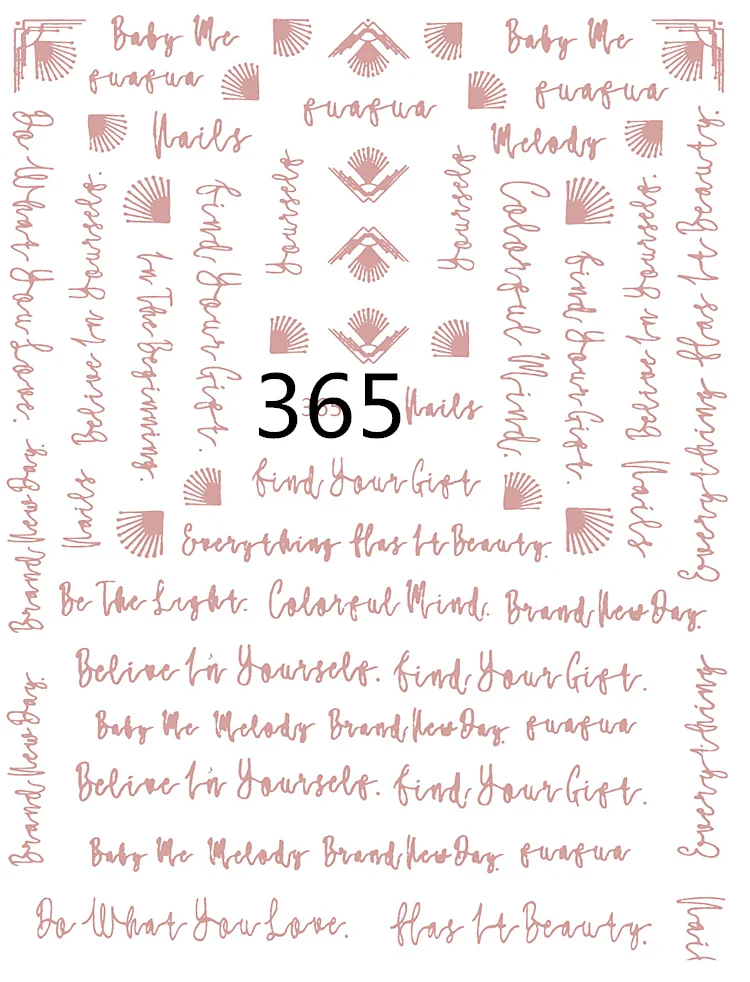 Baby Me
Baby Me
fuafua
fuafua
fuafua
Nails
Melody
Do What You Love.
Believe In Yourself.
In The Beginning.
Find Your Gift.
Yourself
Yourself
Colorful Mind.
Find Your Gift.
Believe In Yourself.
Everything Has It Beauty.
365
365
Nails
Brand New Day.
Nails
Find Your Gift
Nails
Everything Has It Beauty.
Be The Light. Colorful Mind. Brand New Day.
Believe In Yourself. Find Your Gift.
Baby Me Melody Brand New Day. fuafua
Believe In Yourself. Find Your Gift.
Baby Me Melody Brand New Day. fuafua
Brand New Day.
Everything
Do What You Love. Has It Beauty.
Nail